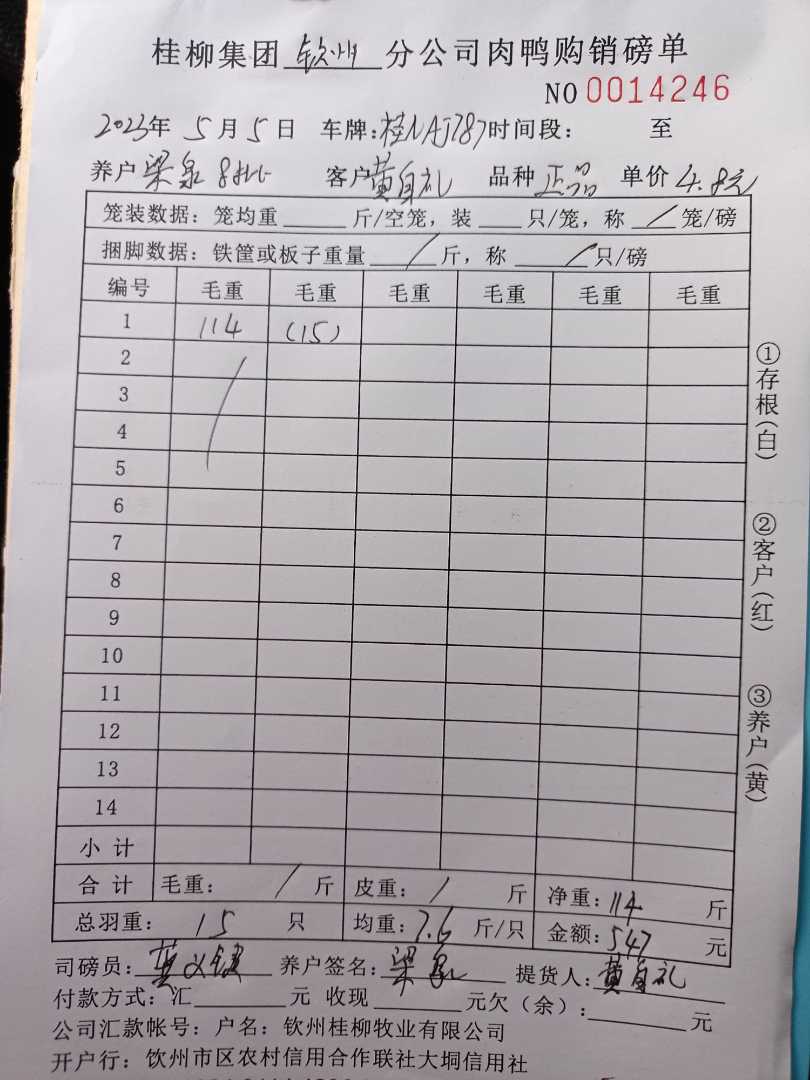 桂柳集团 钦州 分公司肉鸭购销磅单
NO 0014246
2023年 5月5日 车牌:桂NAJ787时间段: 至
养户 梁泉 8批 客户 黄自礼 品种 正品 单价 4.8元
笼装数据:笼均重______斤/空笼,装____只/笼,称 / 笼/磅
捆脚数据:铁筐或板子重量 / 斤,称 / 只/磅
编号 毛重 毛重 毛重 毛重 毛重 毛重
1 114 (15)
2
3
4
5
6
7
8
9
10
11
12
13
14
小 计
合 计 毛重: / 斤 皮重: / 斤 净重:114 斤
总羽重: 15 只 均重:7.6 斤/只 金额:547 元
司磅员: 养户签名:梁泉 提货人:黄自礼
付款方式:汇______元 收现______元欠(余):______元
公司汇款帐号:户名:钦州桂柳牧业有限公司
开户行:钦州市区农村信用合作联社大垌信用社
①存根(白)
②客户(红)
③养户(黄)